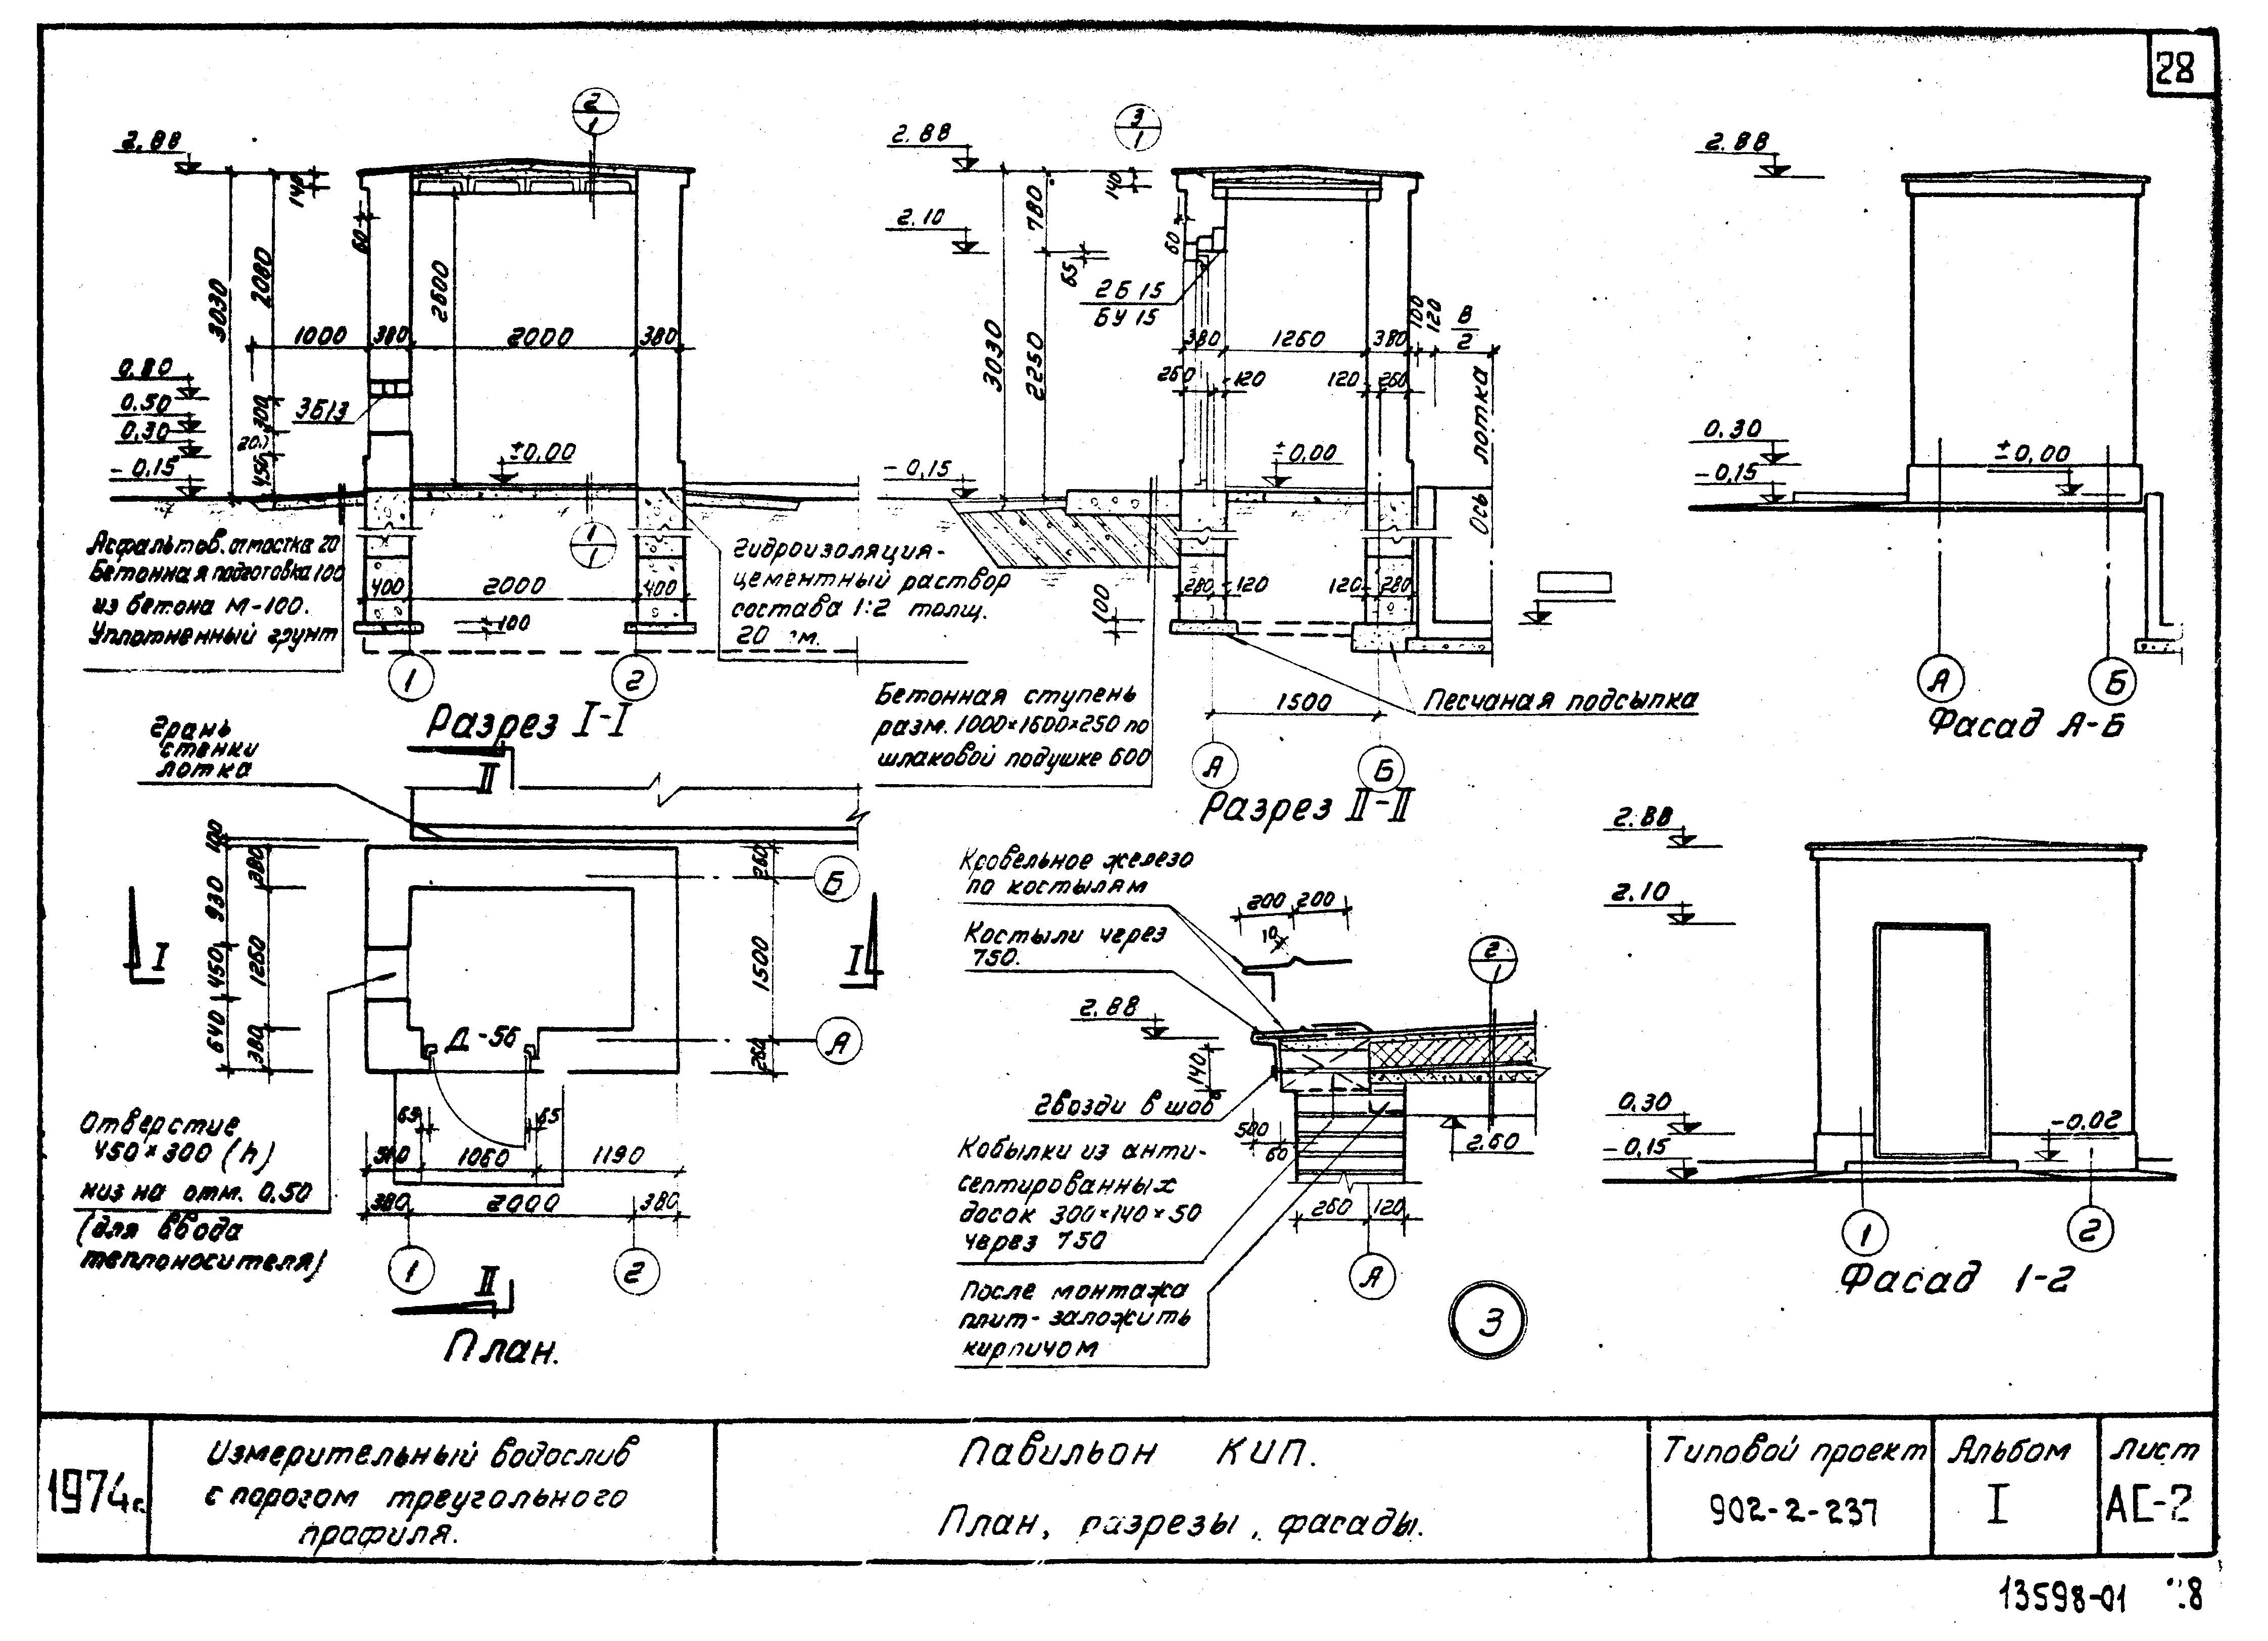 28
2
1
2.88
140
60
3030
2080
2600
1000
380
2000
380
0.80
0.50
0.30
-0.15
300
450
3Б13
±0,00
1
1
Асфальтов. отмостка 20
Бетонная подготовка 100
из бетона М-100.
Уплотненный грунт
400
2000
400
100
гидроизоляция-
цементный раствор
состава 1:2 толщ.
1
2
Разрез I-I
3
1
2.88
2.10
-0,15
140
780
60
65
3030
2250
2Б 15
БУ 15
380
1260
380
100
120
В
2
260
120
120
260
±0.00
Ось лотка
280
120
120
280
100
Бетонная ступень
разм. 1000×1600×250 по
шлаковой подушке 600
1500
Песчаная подсыпка
А
Б
Разрез II-II
2.88
0.30
-0.15
±0,00
А
Б
Фасад А-Б
грань
стенки
лотка
II
100
930
450
640
380
1260
380
260
1500
260
Б
А
I
I
Д-56
65
65
1060
1190
380
2000
380
1
2
II
План.
Отверстие
450×300 (h)
низ на отм. 0.50
(для ввода
теплоносителя)
Кровельное железо
по костылям
200
200
10
Костыли через
750.
2.88
140
2
1
Гвозди в шов
500
60
2.60
Кобылки из анти-
септированных
досок 300×140×50
через 750
260
120
А
После монтажа
плит-заложить
кирпичом
3
2.88
2.10
0.30
-0,15
-0.02
1
2
Фасад 1-2
1974г.
Измерительный водослив
с порогом треугольного
профиля.
Павильон КИП.
План, разрезы, фасады.
Типовой проект
902-2-237
Альбом
I
Лист
АС-2
13598-01